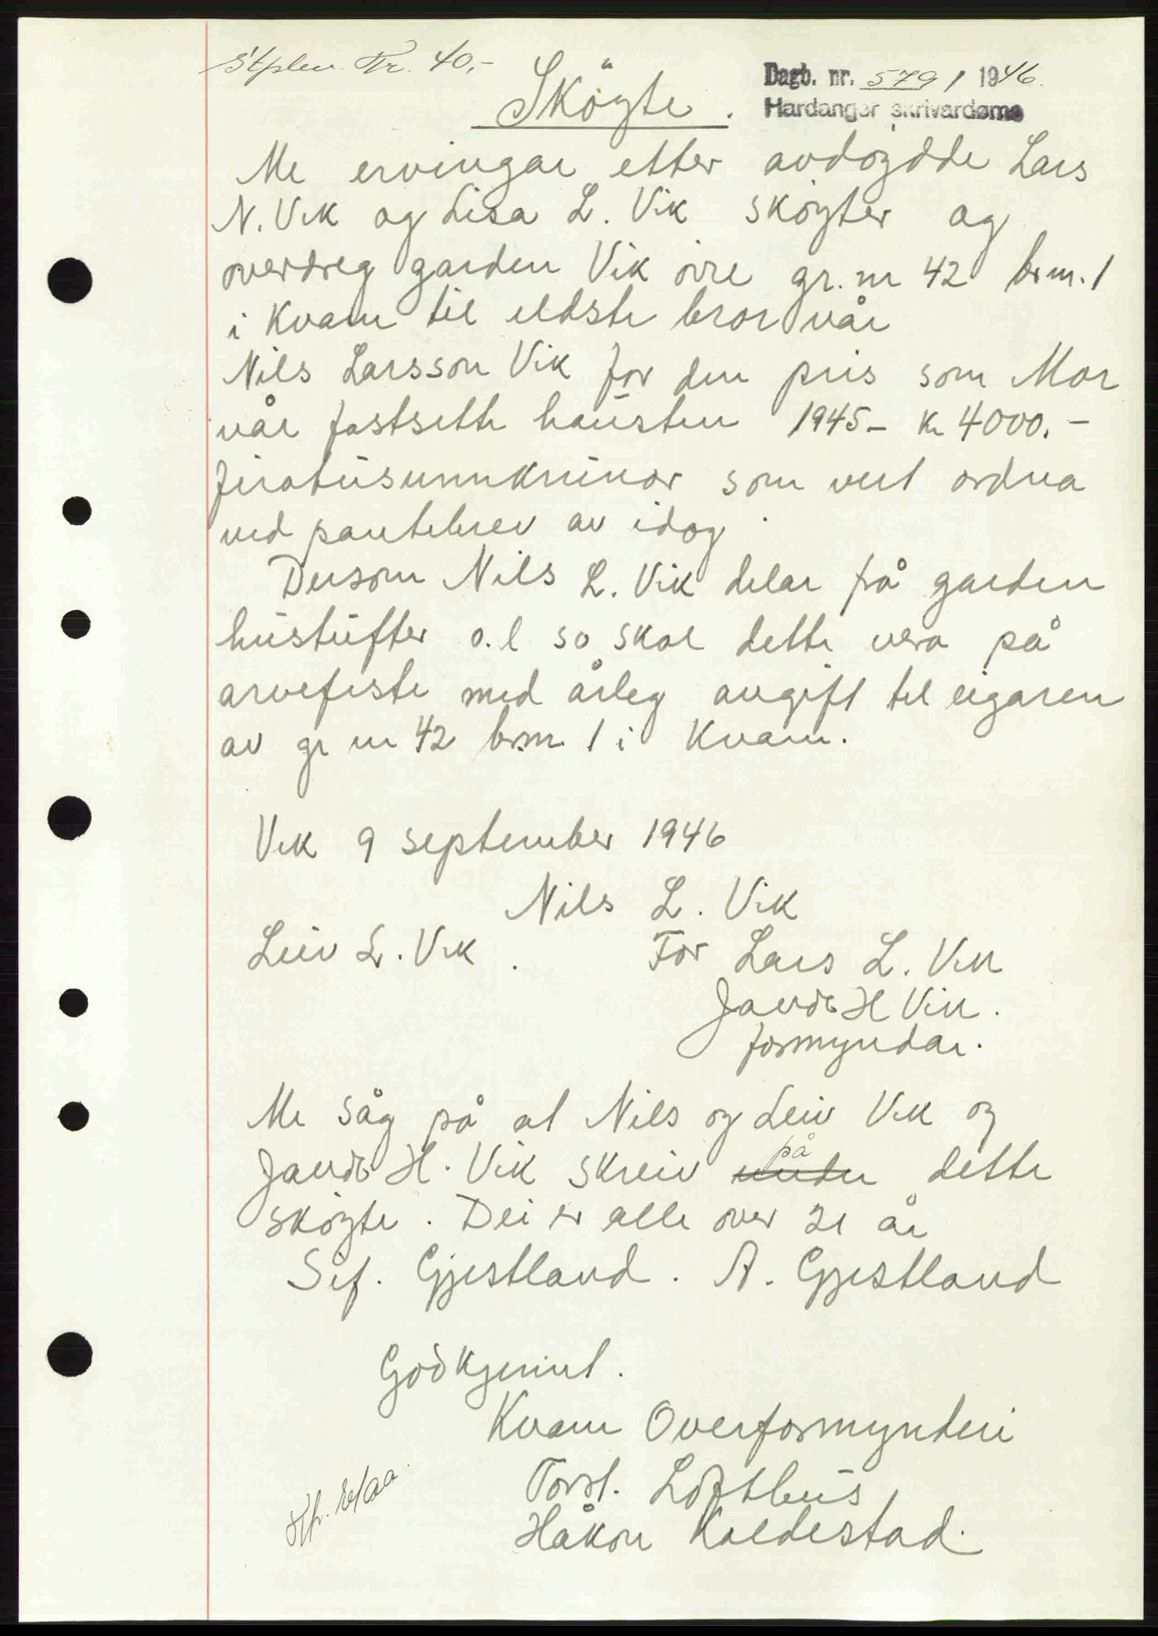 Stplm. Kr. 40,-
Dagb. nr. 579 / 1946.
Sköyte.
Hardanger skrivardøme
Me ervingar etter avdøydde Lars
N. Vik og Lisa L. Vik sköyter og
overdreg garden Vik övre gr. nr 42 br.nr. 1
i Kvam til eldste bror vår
Nils Larsson Vik for den pris som Mor
vår fastsette hausten 1945 - kr 4000.-
firatusunnkrunor som vert ordna
ved pantebrev av idag.
Dersom Nils L. Vik delar frå garden
hustufter o.l so skal dette vera på
arvefeste med årleg avgift til eigaren
av gr nr 42 br.nr 1 i Kvam.
Vik 9 september 1946
Nils L. Vik
Leiv L. Vik. For Lars L. Vik
H Vik.
formyndar.
Me såg på at Nils og Leiv Vik og
H. Vik skreiv på dette
sköyte. Dei er alle over 21 år
Sif. Gjestland. A. Gjestland
Godkjennt.
Kvam Overformynderi
Torst. Lofthus
Håkon Kaldestad.